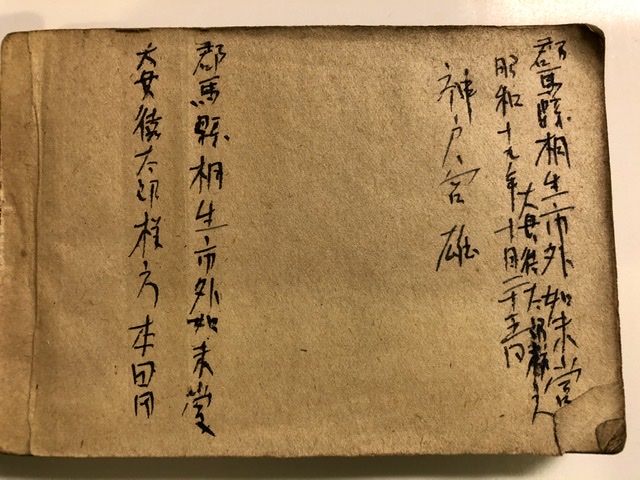 郡馬縣桐生市外如来堂
大貫 太郎様方
昭和十九年十月二十五日
神戸宮雄
郡馬縣桐生市外如来堂
大貫 太郎様方 本田